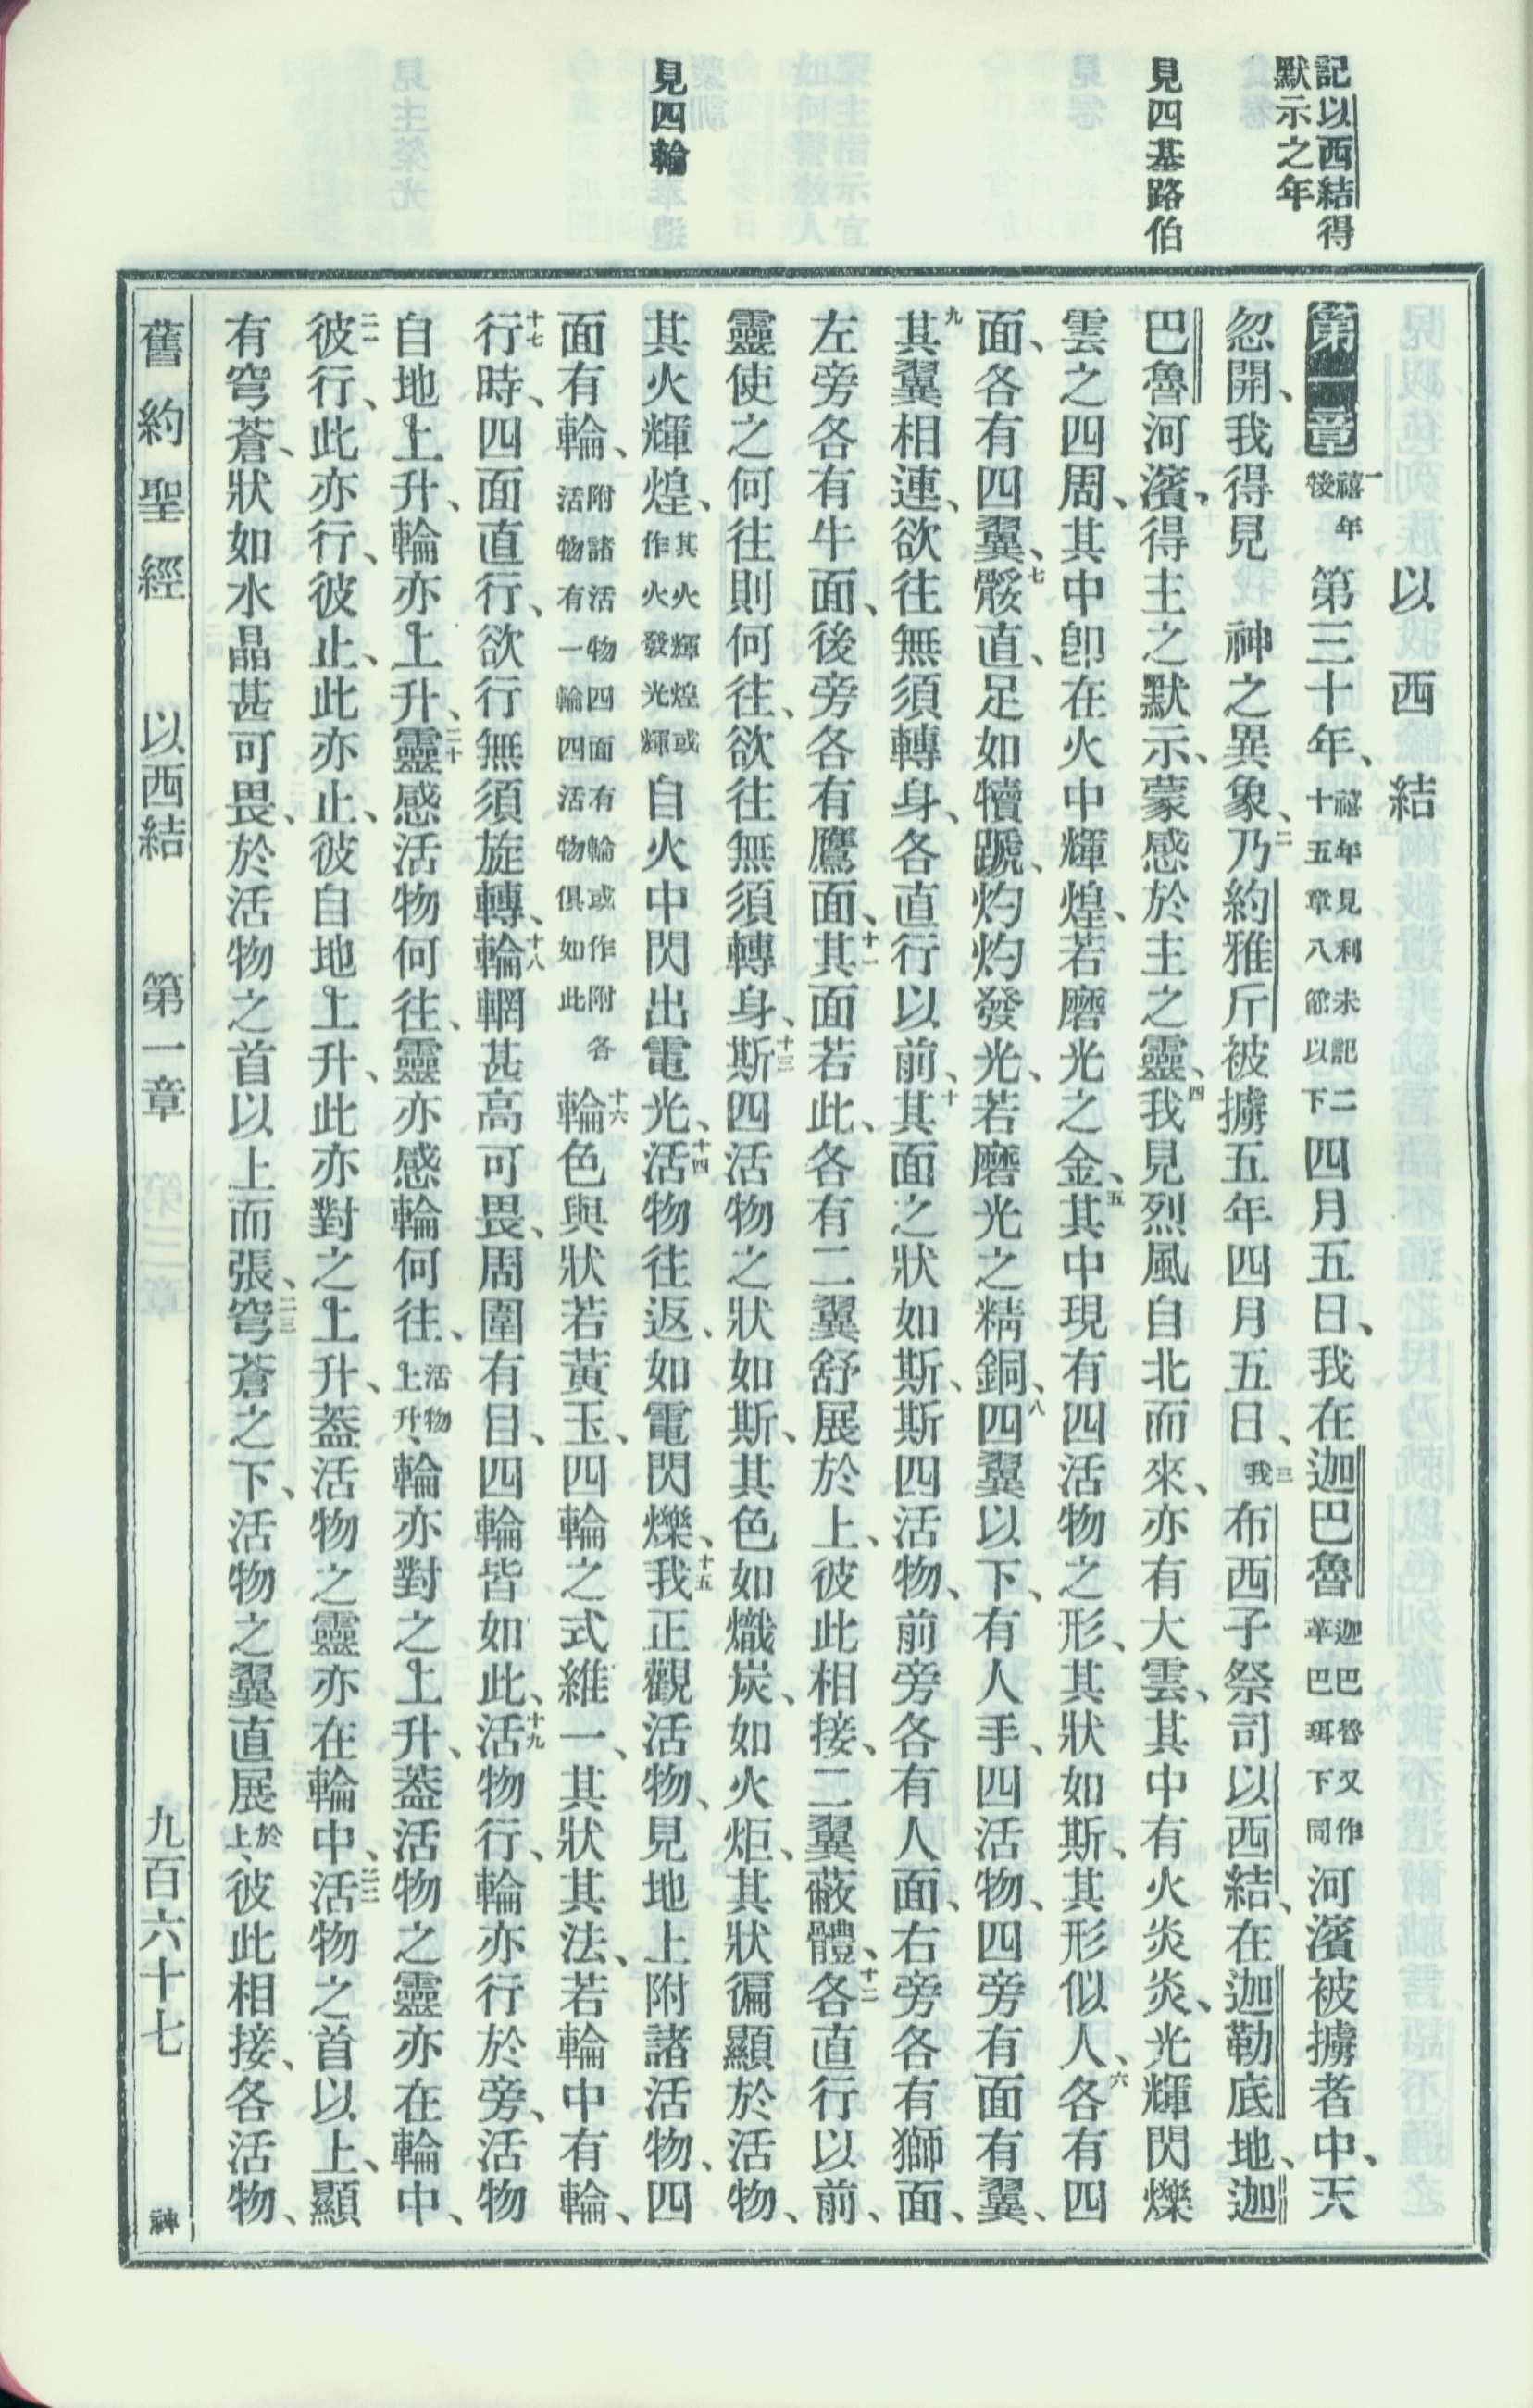 記以西結得
默示之年
見四基路伯
見四輪
以西結
第一章 一 禧年後 第三十年、禧年見利未記二十五章八節以下 四月五日、我在迦巴魯 迦巴魯又作革巴珥下同 河濱被擄者中、天
忽開、我得見 神之異象、二乃約雅斤被擄五年四月五日、三我布西子祭司以西結、在迦勒底地、迦
巴魯河濱、得主之默示、蒙感於主之靈、四我見烈風自北而來、亦有大雲、其中有火炎炎、光輝閃爍
雲之四周、其中卽在火中輝煌、若磨光之金、五其中現有四活物之形、其狀如斯、其形似人、六各有四
面、各有四翼、七骽直、足如犢蹏、灼灼發光、若磨光之精銅、八四翼以下、有人手、四活物、四旁有面有翼、
九其翼相連、欲往無須轉身、各直行以前、十其面之狀如斯、斯四活物、前旁各有人面、右旁各有獅面、
左旁各有牛面、後旁各有鷹面、十一其面若此、各有二翼舒展於上、彼此相接、二翼蔽體、十二各直行以前、
靈使之何往則何往、欲往無須轉身、十三斯四活物之狀如斯、其色如熾炭、如火炬、其狀徧顯於活物、
其火輝煌、其火輝煌或作火發光輝 自火中閃出電光、十四活物往返、如電閃爍、十五我正觀活物、見地上附諸活物、四
面有輪、附諸活物四面有輪或作附各活物有一輪四活物俱如此 十六輪色與狀若黃玉、四輪之式維一、其狀其法、若輪中有輪、
十七行時、四面直行、欲行無須旋轉、十八輪輞甚高可畏、周圍有目、四輪皆如此、十九活物行、輪亦行於旁、活物
自地上升、輪亦上升、二十靈感活物何往、靈亦感輪何往、活物上升、輪亦對之上升、葢活物之靈亦在輪中、
二一彼行、此亦行、彼止、此亦止、彼自地上升、此亦對之上升、葢活物之靈亦在輪中、二二活物之首以上、顯
有穹蒼、狀如水晶甚可畏、於活物之首以上而張、二三穹蒼之下、活物之翼直展於上、彼此相接、各活物、
舊約聖經 以西結 第一章 九百六十七 神